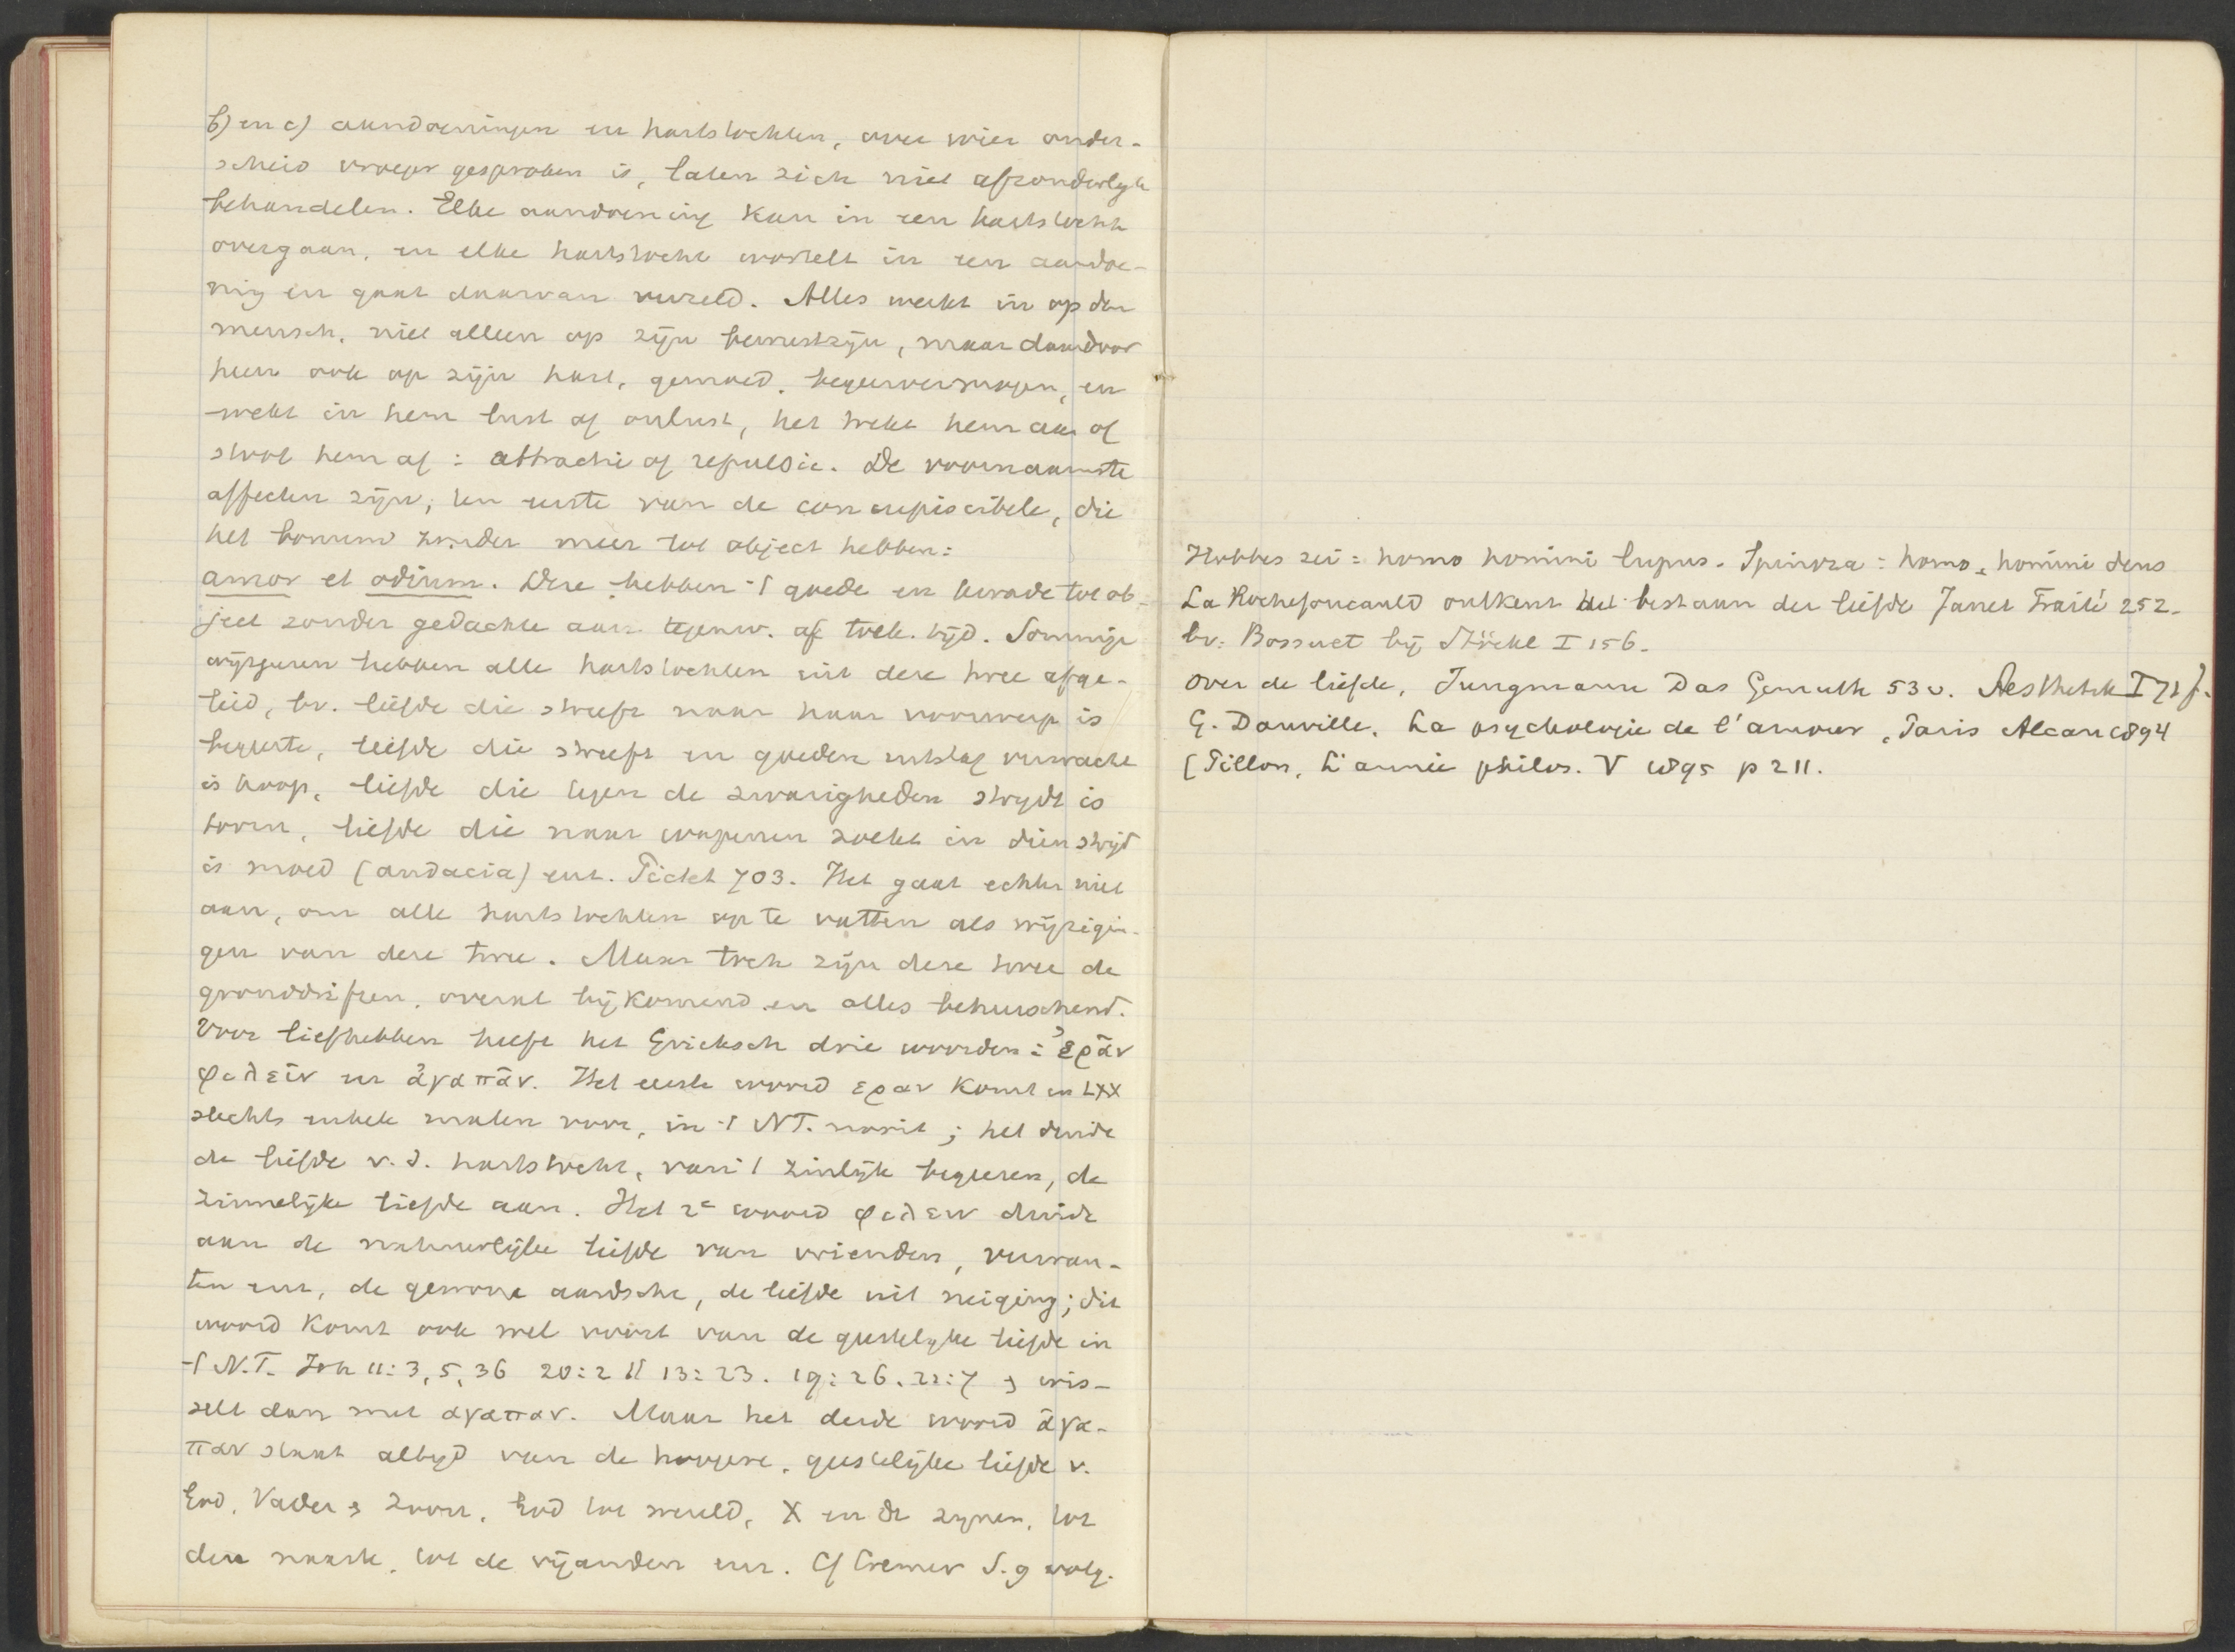 b) en c) aandoeningen en hartstochten, over wier onder-
scheid vroeger gesproken is, laten zich niet afzonderlijk
behandelen. Elke aandoening kan in een hartstocht
overgaan, en elke hartstocht wortelt in een aandoe-
ning en gaat daarvan vergezeld. Alles werkt in op den
mensch, niet alleen op zijn bewustzijn, maar daardoor
heen ook op zijn hart, gemoed, begeervermogen, en
wekt in hem lust of onlust, het trekt hem aan of
stoot hem af: attractie of repulsie. De voornaamste
affecten zijn, ten eerste van de concupiscibele, die
het bonum zonder meer tot object hebben:
amor et odium. Deze hebben 't goede en kwade tot ob-
ject zonder gedachte aan tegenw. of toek. tijd. Sommige
wijsgeeren hebben alle hartstochten uit deze twee afge-
leid, bv. liefde die streeft naar haar voorwerp is
begeerte, liefde die streeft en goeden uitslag verwacht
is hoop, liefde die tegen de zwarigheden strijdt is
toorn, liefde die naar wapenen zoekt in dien strijd
is moed (audacia) enz. 703. Het gaat echter niet
aan, om alle hartstochten op te vatten als wijzigin-
gen van deze twee. Maar toch zijn deze twee de
gronddriften, overal bijkomend en alles beheerschend.
Voor liefhebben heeft het Grieksch drie woorden: ἐρᾶν
φιλεῖν en ἀγαπᾶν. Het eerste woord εραν komt in LXX
slechts enkele malen voor, in 't NT. nooit; het duidt
de liefde v. d. hartstocht, van 't zinlijk begeeren, de
zinnelijke liefde aan. Het 2e woord φιλειν duidt
aan de natuurlijke liefde van vrienden, verwan-
ten enz, de gewone aardsche, de liefde uit neiging; dit
woord komt ook wel voor van de geestelijke liefde in
't N.T. Joh 11:3,5,36 20:2 13:23. 19:26. 21:7 & wis-
selt dan met αγαπαν. Maar het derde woord ἀγα-
παν staat altijd van de hoogere, geestelijke liefde v.
God, Vader & Zoon, God tot wereld, X en de zijnen, tot
den naaste, tot de vijanden enz. Cf Cremer S. 9 volg.
Hobbes zei: homo homini lupus. Spinoza: homo homini deus
La Rochefoucauld ontkent het bestaan der liefde Janet Traité 252.
bv. Bossuet bij Stöckl I 156.
over de liefde, Jungmann Das Gemuth 53 v. Aesthetik I 71 f.
G. Danville. La psychologie de l'amour, Paris Alcan 1894
(Pillon, L'année philos. V 1895 p 211.